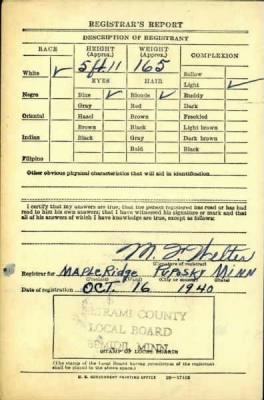 REGISTRAR'S REPORT
DESCRIPTION OF REGISTRANT
RACE HEIGHT (Approx.) WEIGHT (Approx.) COMPLEXION
5 ft 11 165
White ✓ Sallow
EYES HAIR Light ✓
Negro Blue ✓ Blonde ✓ Ruddy
Gray Red Dark
Oriental Hazel Brown Freckled
Brown Black Light brown
Indian Black Gray Dark brown
Bald Black
Filipino
Other obvious physical characteristics that will aid in identification
I certify that my answers are true; that the person registered has read or has had
read to him his own answers; that I have witnessed his signature or mark and that
all of his answers of which I have knowledge are true, except as follows:
(Signature of registrar)
Registrar for MAPLE Ridge Puposky MINN
(Precinct) (Ward) (City or county) (State)
Date of registration OCT. 16 1940
BELTRAMI COUNTY
LOCAL BOARD
BEMIDJI, MINN
STAMP OF LOCAL BOARD
(The stamp of the Local Board having jurisdiction of the registrant
shall be placed in the above space.)
U. S. GOVERNMENT PRINTING OFFICE